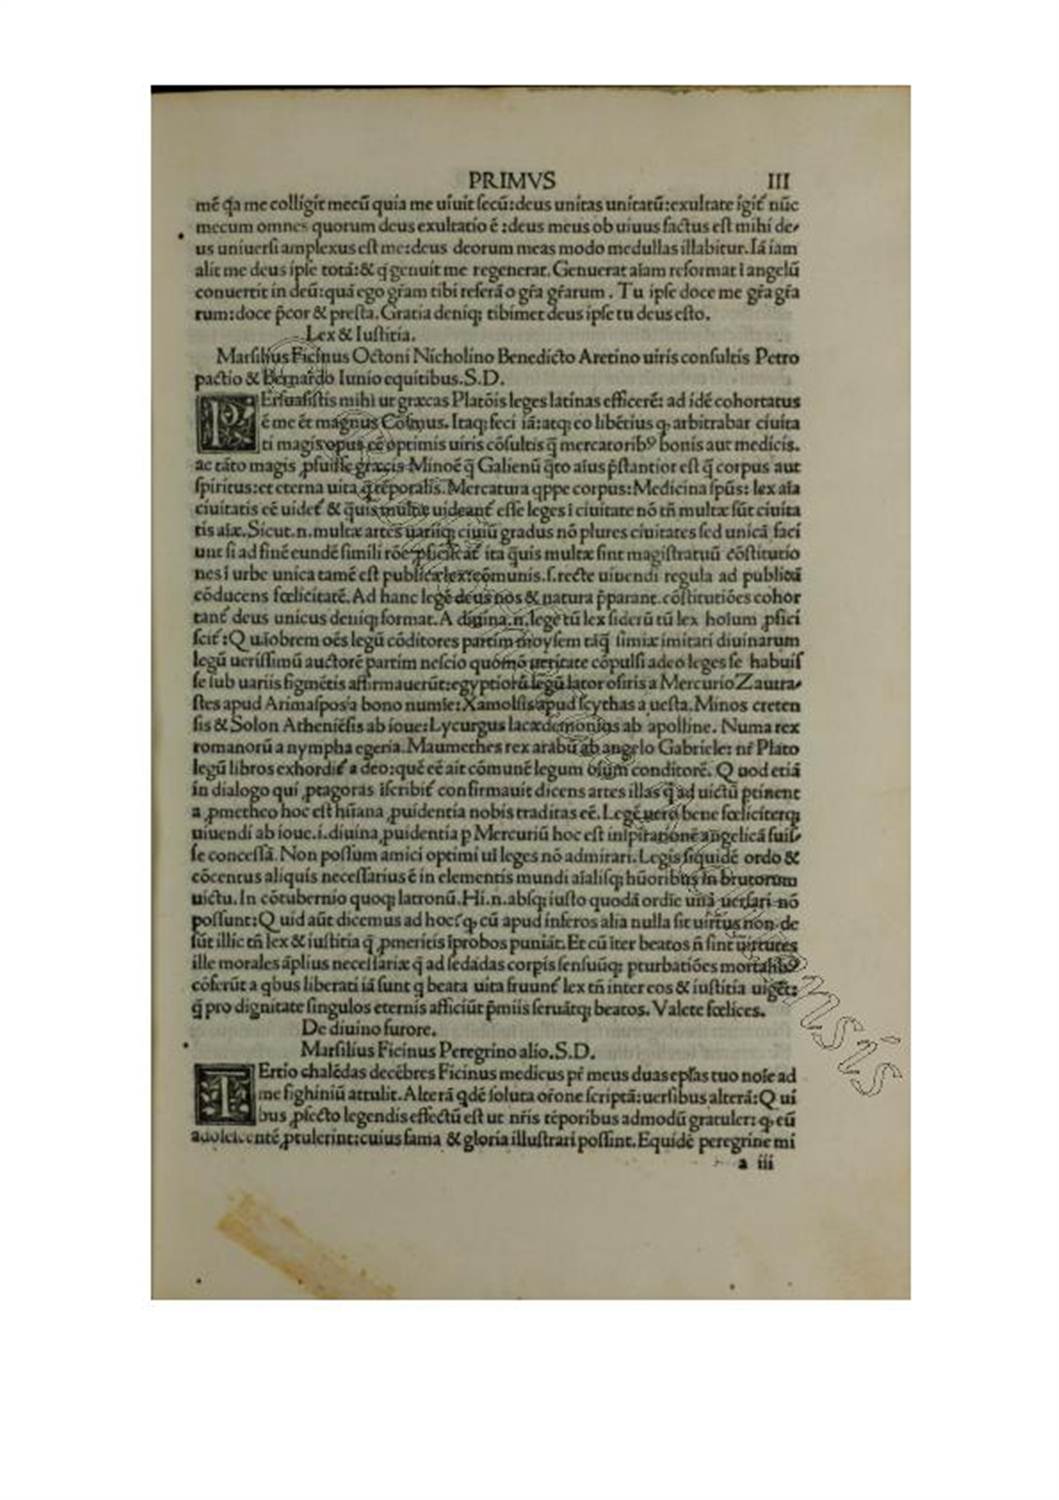 PRIMVS III
mē q̄a me colligīt mecū quia me uiuit secū:deus unitas unitatū:exultate igit᷑ nūc
mecum omnes quorum deus exultatio ē :deus meus ob uiuus factus est mihi de/
us uniuersi amplexus est me:deus deorum meas modo medullas illabitur.Iā iam
alit me deus ipse totā:& q̄ genuit me regenerat. Genuerat aīam reformat ī angelū
conuertit in deū:quā ego gr̄am tibi referā o gr̄a gr̄arum . Tu ipse doce me gr̄a gr̄a
rum:doce p̄cor & presta.Gratia deniq; tibimet deus ipse tu deus esto.
Lex & Iustitia.
Marsilius Ficinus Octoni Nicholino Benedicto Aretino uiris consultis Petro
pactio & Bernardo Iunio equitibus.S.D.
PErsuasistis mihi ut græcas Platōis leges latinas efficerē: ad idē cohortatus
ē me ēt magnus Cosmus. Itaq; feci iā:atq; eo libētius q, arbitrabar ciuita
ti magis opus eē optimis uiris cōsultis q̄ mercatorib⁹ bonis aut medicis.
ac tāto magis ꝓfuisse græcis Minoē q̄ Galienū q̄to aīus p̄stantior est q̄ corpus aut
spiritus:et eterna uita q̄ tēporalis.Mercatura qppe corpus:Medicina spūs: lex aīa
ciuitatis eē uidet᷑ & quis multæ uideant᷑ esse leges ī ciuitate nō tn̄ multæ sūt ciuita
tis aīæ.Sicut.n.multæ artes uariiq; ciuiū gradus nō plures ciuitates sed unicā faci
unt si ad finē eundē simili rōe ꝓficiscāt᷑ ita quis multæ sint magistratuū cōstitutio
nes ī urbe unica tamē est publicæ lex:cōmunis.s.recte uiuendi regula ad publicā
cōducens fœlicitatē. Ad hanc legē deus nos & natura p̄parant.cōstitutiōes cohor
tant᷑ deus unicus deniq; format. A diuina.n.lege tū lex siderū tū lex hoīum ꝓfici
scit᷑:Q uāobrem oēs legū cōditores partim moysem tāq̄ simiæ imitari diuinarum
legū uerissimū auctorē partim nescio quomō ueritate cōpulsi adeo leges se habuis
se sub uariis figmētis affirmauerūt:egyptiorū legū lator osiris a Mercurio Zautra/
stes apud Arimaspos a bono numīe:Xamolsis apud scythas a uesta. Minos creten
sis & Solon Atheniēsis ab ioue:Lycurgus lacædemonius ab apolline. Numa rex
romanorū a nympha egeria.Maumethes rex arabū ab angelo Gabriele: nr̄ Plato
legū libros exhordit᷑ a deo:quē eē ait cōmunē legum oīum conditorē. Q uod etiā
in dialogo qui ꝓtagoras īscribit᷑ confirmauit dicens artes illas q̄ ad uictū ptinent
a ꝓmetheo hoc est hūana ꝓuidentia nobis traditas eē. Legē uero bene fœliciterq;
uiuendi ab ioue.i.diuina ꝓuidentia p Mercuriū hoc est inspirationē angelicā fuis/
se concessā. Non possum amici optimi uī leges nō admirari.Legis siquidē ordo &
cōcentus aliquis necessarius ē in elementis mundi aīalisq; hūoribus in brutorum
uictu. In cōtubernio quoq; latronū. Hi.n.absq; iusto quodā ordīe unā uersari nō
possunt:Q uid aūt dicemus ad hoc? q, cū apud inferos alia nulla sit uirtus non de
sūt illic tn̄ lex & iustitia q̄ ꝓmeritis īprobos puniāt. Et cū īter beatos n̄ sint uirtutes
ille morales āplius necessariæ q̄ ad sedādas corpīs sensuūq; pturbatiōes mortalib⁹
cōferūt a qbus liberati iā sunt q beata uita fruunt᷑ lex tn̄ inter eos & iustitia uiget:
q̄ pro dignitate singulos eternis afficiūt p̄miis seruātq; beatos. Valete fœlices.
De diuino furore.
Marsilius Ficinus Peregrino alio.S.D.
TErtio chalēdas decēbres Ficinus medicus pr̄ meus duas epl̄as tuo noīe ad
me fighiniū attulit. Alterā qdē soluta or̄one scriptā:uersibus alterā:Q ui
bus ꝓfecto legendis effectū est ut nr̄is tēporibus admodū gratuler: q, eū
adolescentē ꝓtulerint:cuius fama & gloria illustrari possint. Equidē peregrine mi
a iii